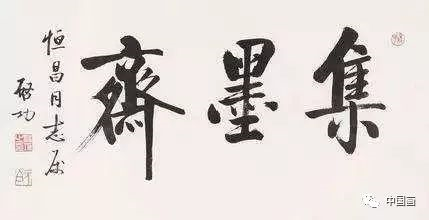 集墨齋
恒昌同志属
啓功
中国画